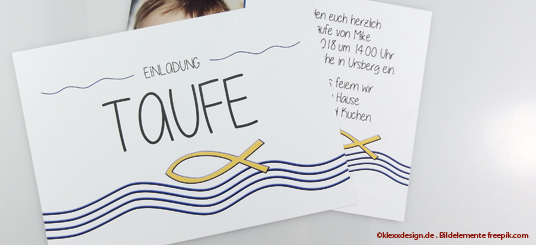 EINLADUNG
TAUFE
euch herzlich
von Mike
um 14.00 Uhr
in Ursberg ein
feiern wir
Hause
Kuchen
©klexxdesign.de . Bildelemente freepik.com